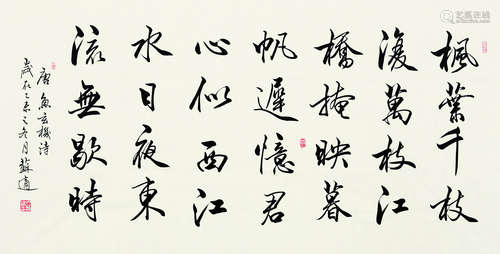 楓葉千枝
復萬枝江
橋掩映暮
帆遲憶君
心似西江
水日夜東
流無歇時
唐魚玄機詩
歲在乙未之冬月蘇適